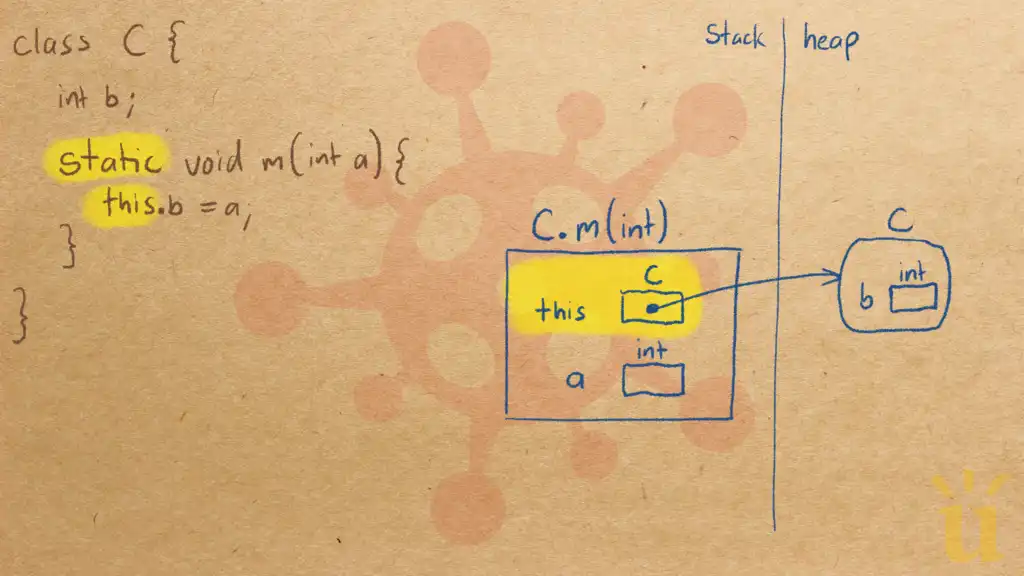 class C {
int b;
static void m(int a) {
this.b = a;
}
}
Stack | heap
C.m(int)
C
this
int
a
C
int
b
u